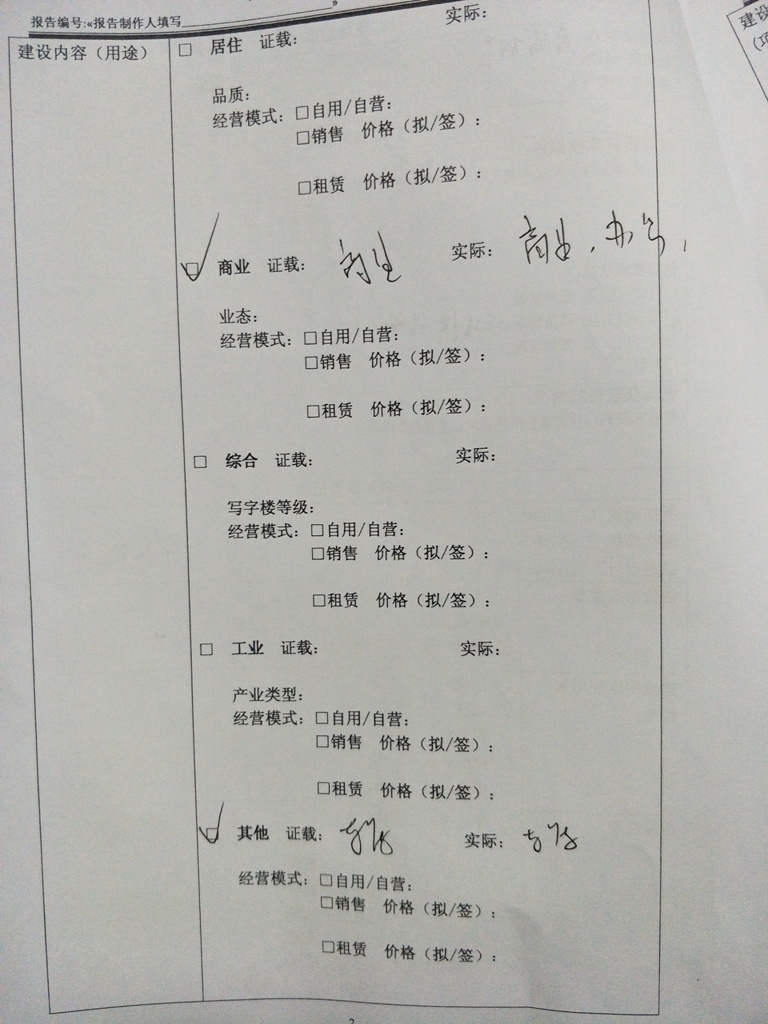 报告编号:«报告制作人填写                »
建设内容（用途）
□ 居住 证载: 实际:
品质:
经营模式: □自用/自营:
□销售 价格（拟/签）:
□租赁 价格（拟/签）:
□ 商业 证载: 商业 实际: 商业、办公、
业态:
经营模式: □自用/自营:
□销售 价格（拟/签）:
□租赁 价格（拟/签）:
□ 综合 证载: 实际:
写字楼等级:
经营模式: □自用/自营:
□销售 价格（拟/签）:
□租赁 价格（拟/签）:
□ 工业 证载: 实际:
产业类型:
经营模式: □自用/自营:
□销售 价格（拟/签）:
□租赁 价格（拟/签）:
□ 其他 证载: 实际:
经营模式: □自用/自营:
□销售 价格（拟/签）:
□租赁 价格（拟/签）:
建设